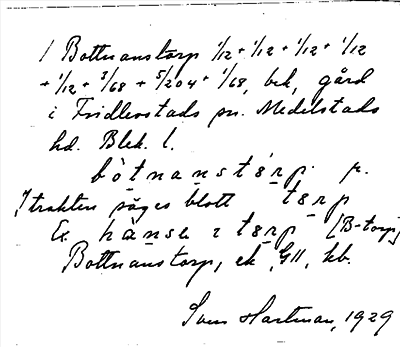 1 Bottnanstorp 1/12 + 1/12 + 1/12 + 1/12
+ 1/12 + 3/68 + 5/204 + 1/68, bek, gård
i Fridlevstads sn. Medelstads
hd. Blek. l.
bòtnanstérp. p.
I trakten säges blott tɛrp
Ex. hànsa i tɛrp [B-torp]
Bottnanstorp, ek, GII, kb.
Sven Hartman, 1929